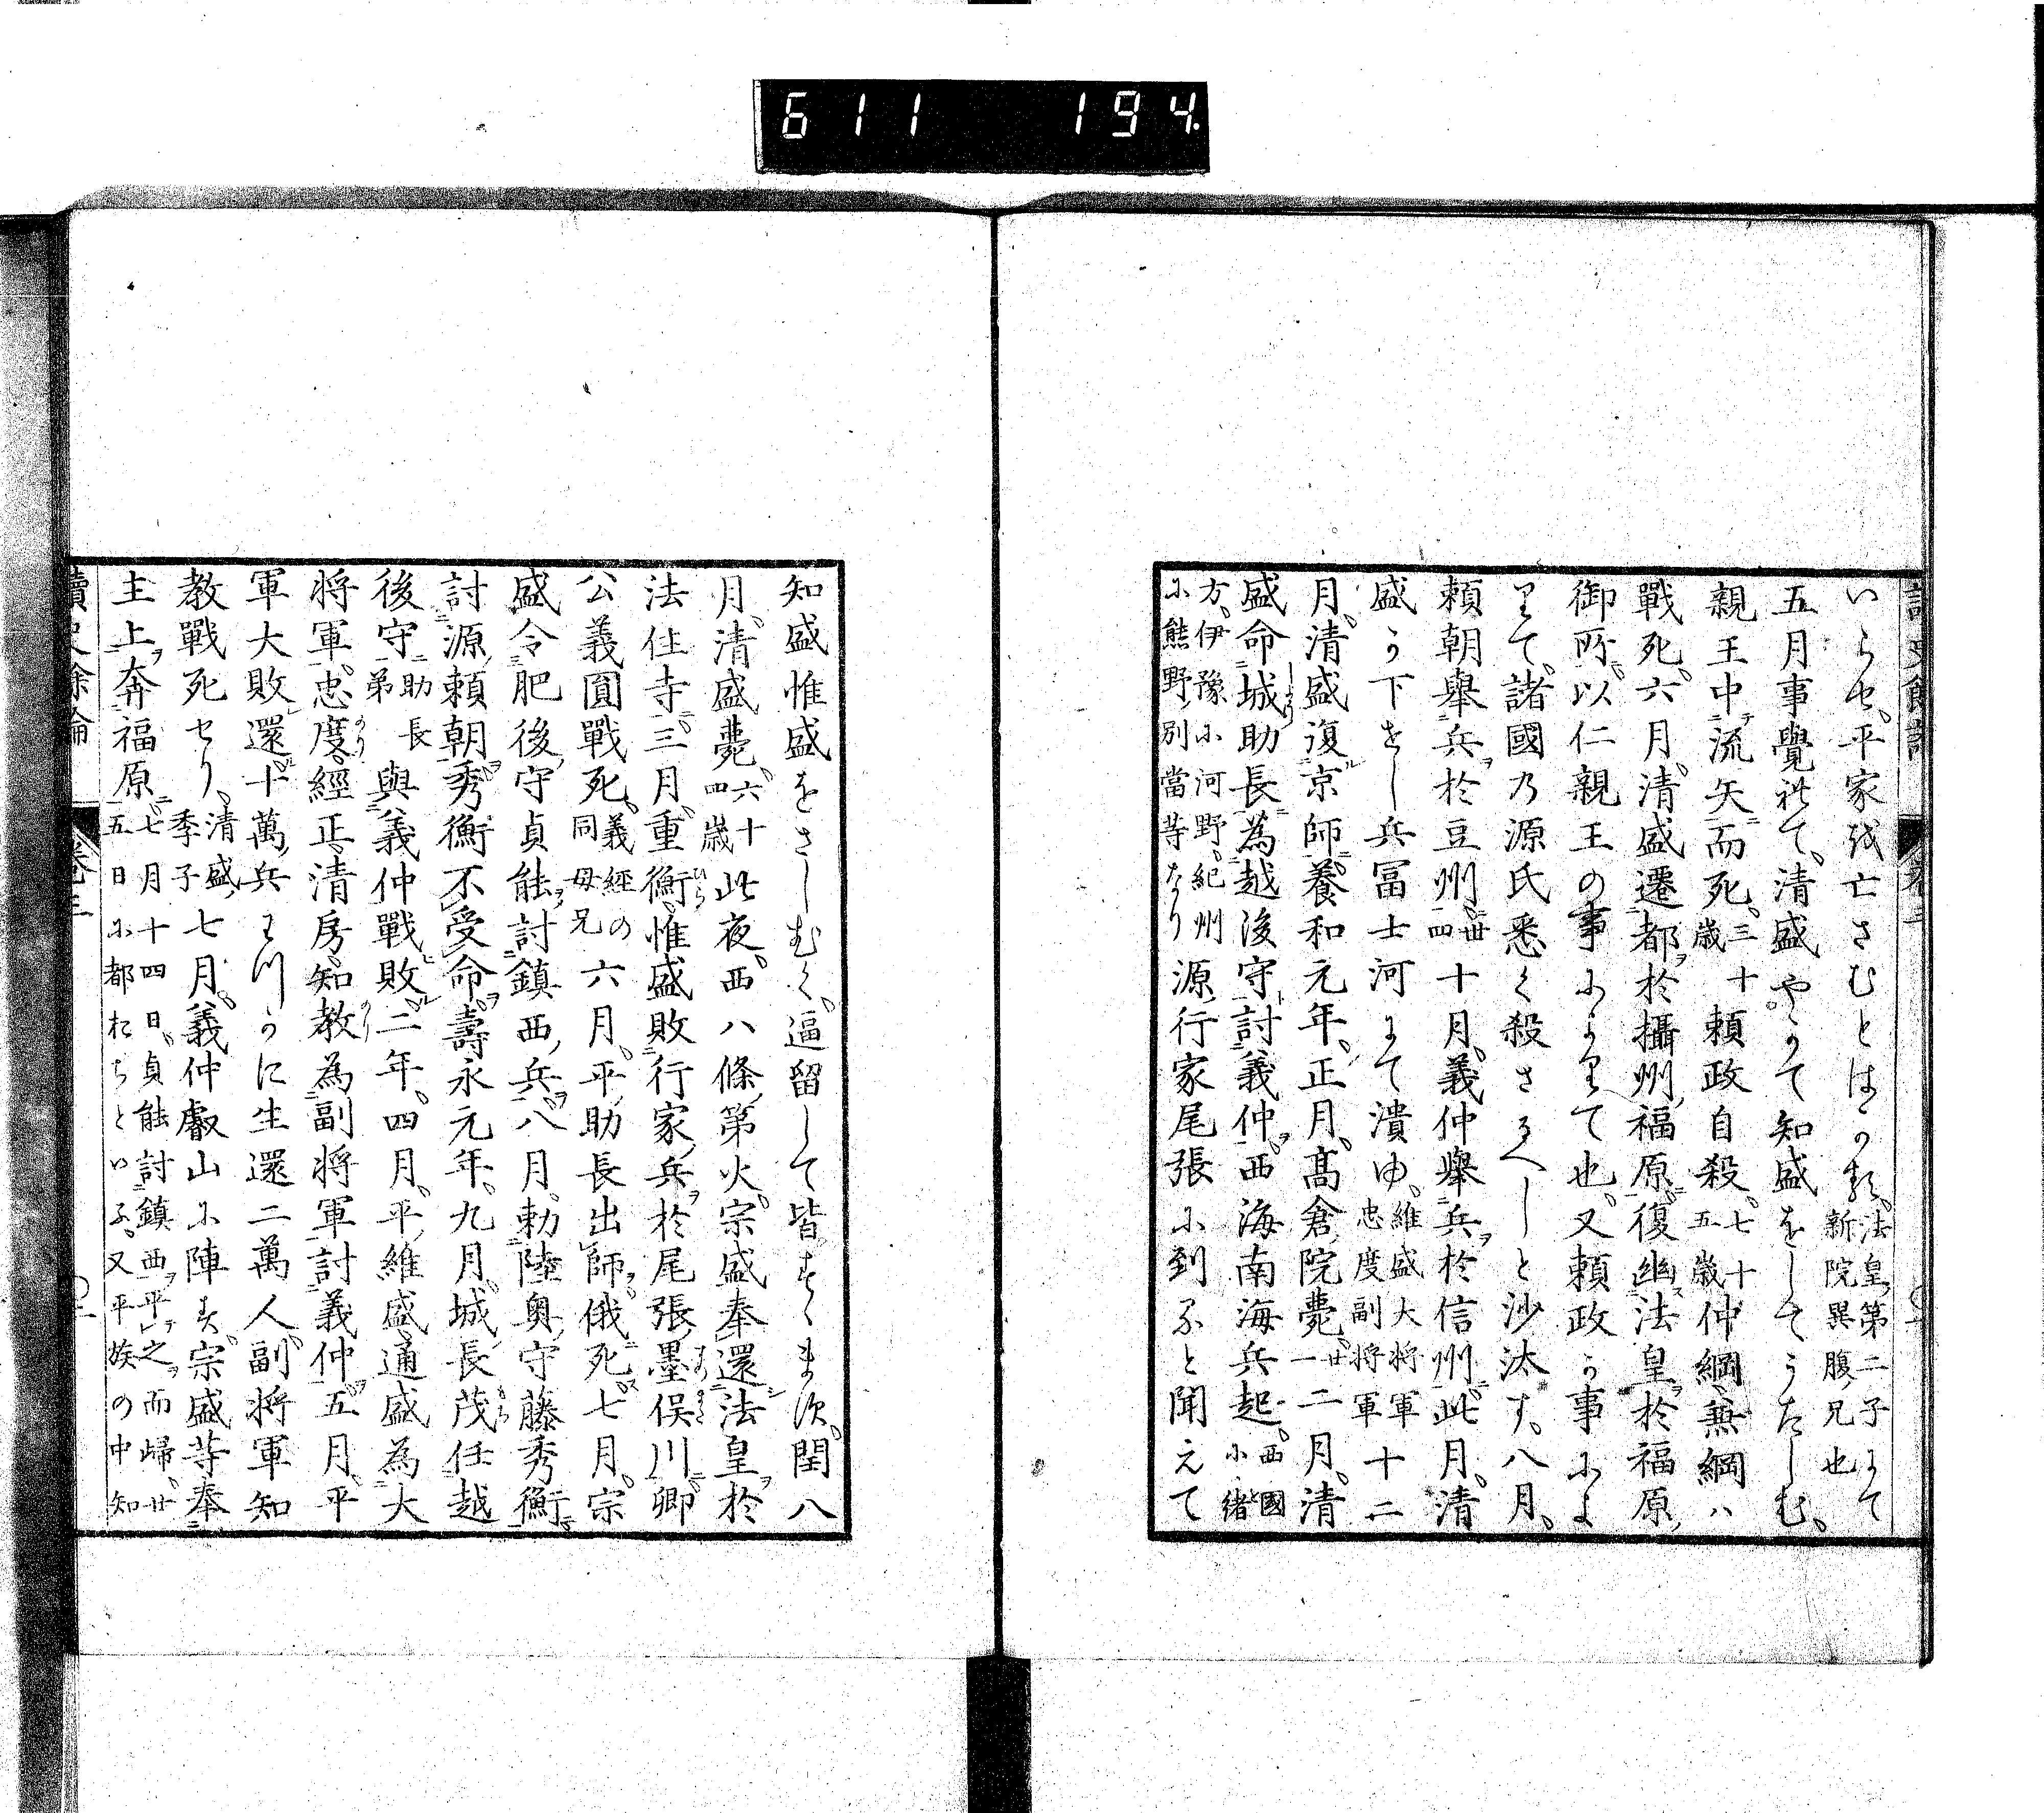 6 1 1 1 9 4.
いらせ、平家を亡さむとはかる、法皇第二子にて新院異腹兄也
五月事覺れて、清盛やかて知盛をしてうたしむ、
親王中流矢而死、三十歳頼政自殺、七十五歳仲綱兼綱ハ
戰死、六月、清盛遷都於攝州福原、復幽法皇於福原
御所、以仁親王の事によりて也、又頼政か事によ
りて、諸國乃源氏悉く殺さるへしと沙汰す、八月、
頼朝擧兵於豆州、卅四十月、義仲擧兵於信州、此月、清
盛か下せし兵冨士河にて潰ゆ、維盛大将軍忠度副将軍十二
月、清盛復京師、養和元年、正月、髙倉院薨、廿一二月、清
盛命城助長為越後守、討義仲、西海南海兵起、西國小緒
方、伊豫小河野、紀州小熊野別當等なり源行家尾張小到ると聞えて
知盛惟盛をさしむく、逗留して皆すゝます、閏八
月、清盛薨、六十四歳此夜、西八條第火、宗盛奉還法皇於
法住寺、三月、重衡惟盛敗行家兵於尾張墨俣川、卿
公義圓戰死、義經の同母兄六月、平助長出師、俄死、七月、宗
盛令肥後守貞能討鎮西兵、八月、勅陸奥守藤秀衡
討源頼朝、秀衡不受命、壽永元年、九月、城長茂任越
後守、助長弟與義仲戰敗、二年、四月、平維盛通盛為大
将軍、忠度經正清房知教為副将軍討義仲、五月、平
軍大敗還、十萬兵わつかに生還二萬人、副将軍知
教戰死せり、清盛季子七月、義仲叡山小陣す、宗盛等奉
主上奔福原、七月十四日、貞能討鎮西平之而歸、廿五日小都おちといふ、又平族の中知
讀史餘論 巻二